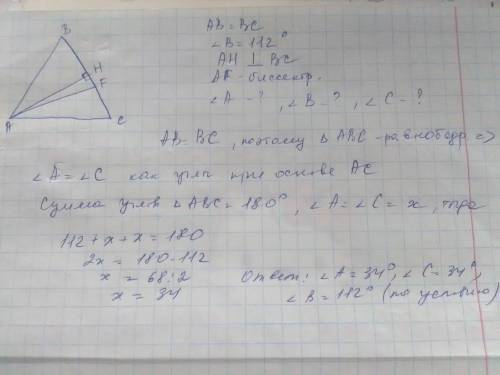 B
H
F
A
C
AB = BC
∠B = 112°
AH ⊥ BC
AF - биссектр.
∠A - ?, ∠B - ?, ∠C - ?
AB = BC, поэтому △ABC - равнобедр =>
∠A = ∠C как углы при основе AC
Сумма углов △ABC = 180°, ∠A = ∠C = x, тогда
112 + x + x = 180
2x = 180 - 112
x = 68 : 2
x = 34
Ответ: ∠A = 34°, ∠C = 34°,
∠B = 112° (по условию)